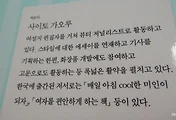 지은이
사이토 가오루
여성지 편집자를 거쳐 뷰티 저널리스트로 활동하고
있다. 스타일에 대한 에세이를 연재하고 기사를
기획하는 한편, 화장품 개발에도 참여하고
고문으로도 활동하는 등 폭넓은 활약을 펼치고 있다.
한국에 출간된 저서로는 『매일 아침 cool한 미인이
되자』, 『여자를 편안하게 하는 책』 등이 있다.